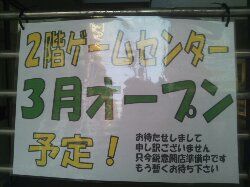 2階ゲームセンター
3月オープン
予定！
お待たせしまして
申し訳ございません
只今鋭意開店準備中です
もう暫くお待ち下さい